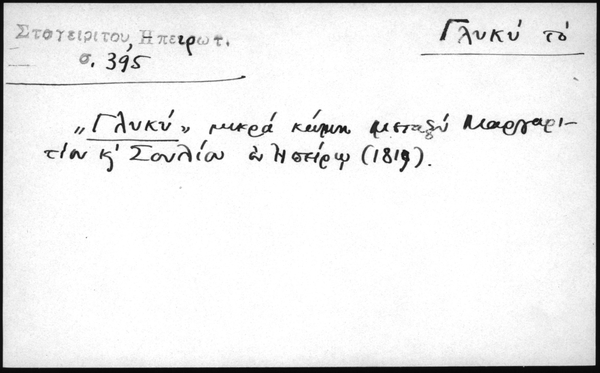 Σταγειρίτου, Ηπειρωτ.
σ. 395
Γλυκύ τό
„Γλυκύ„ μικρά κώμη μεταξύ Μαργαρι-
τίου κ' Σουλίου ἐν Ἠπείρῳ (1819).